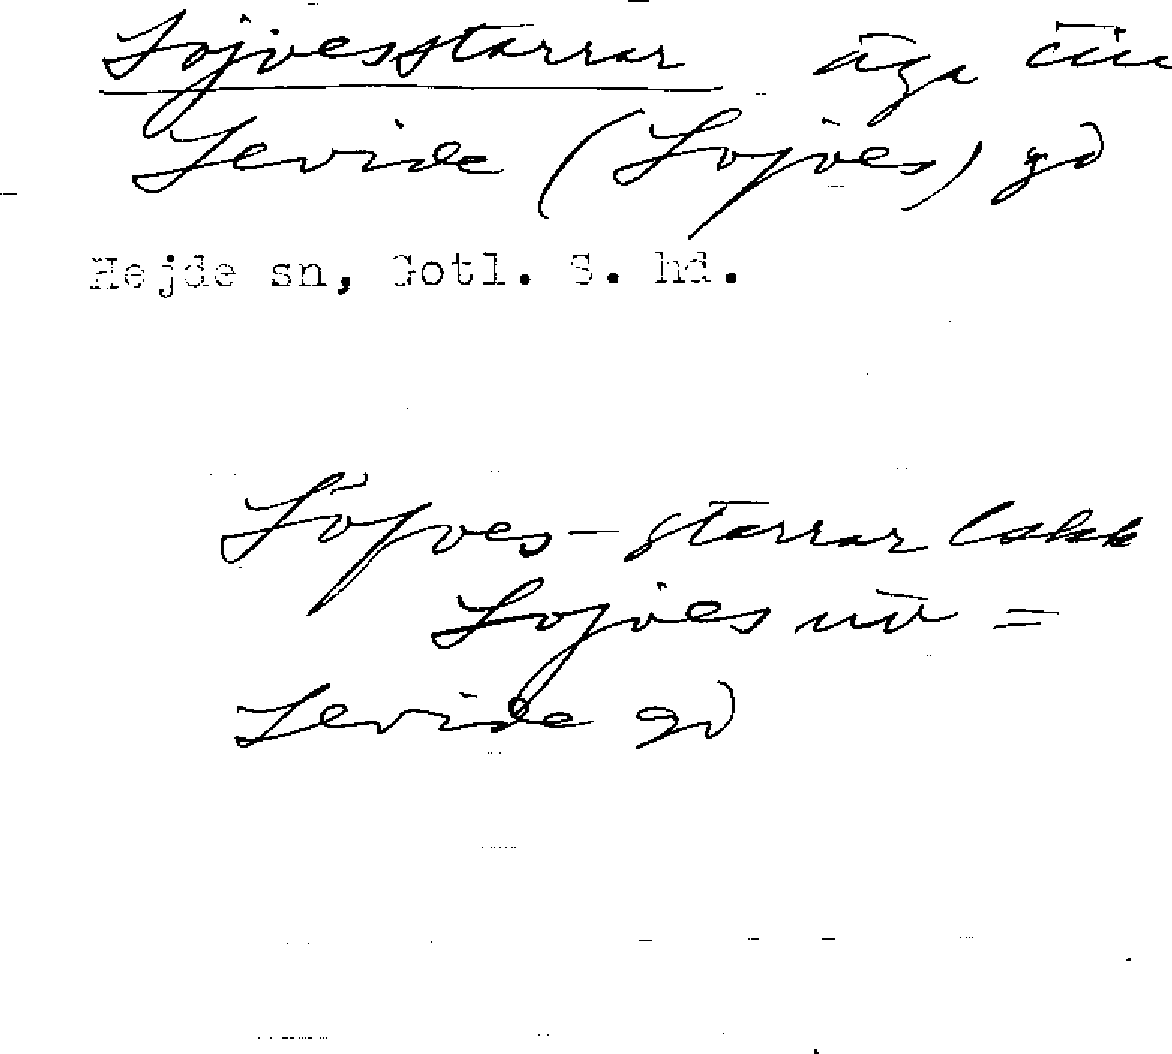 Lojvesstarrar äga till
Levide (Lojves) gd
Hejde sn, Gotl. S. hd.
Lojves-starrar
Lojves nu =
Levide gd